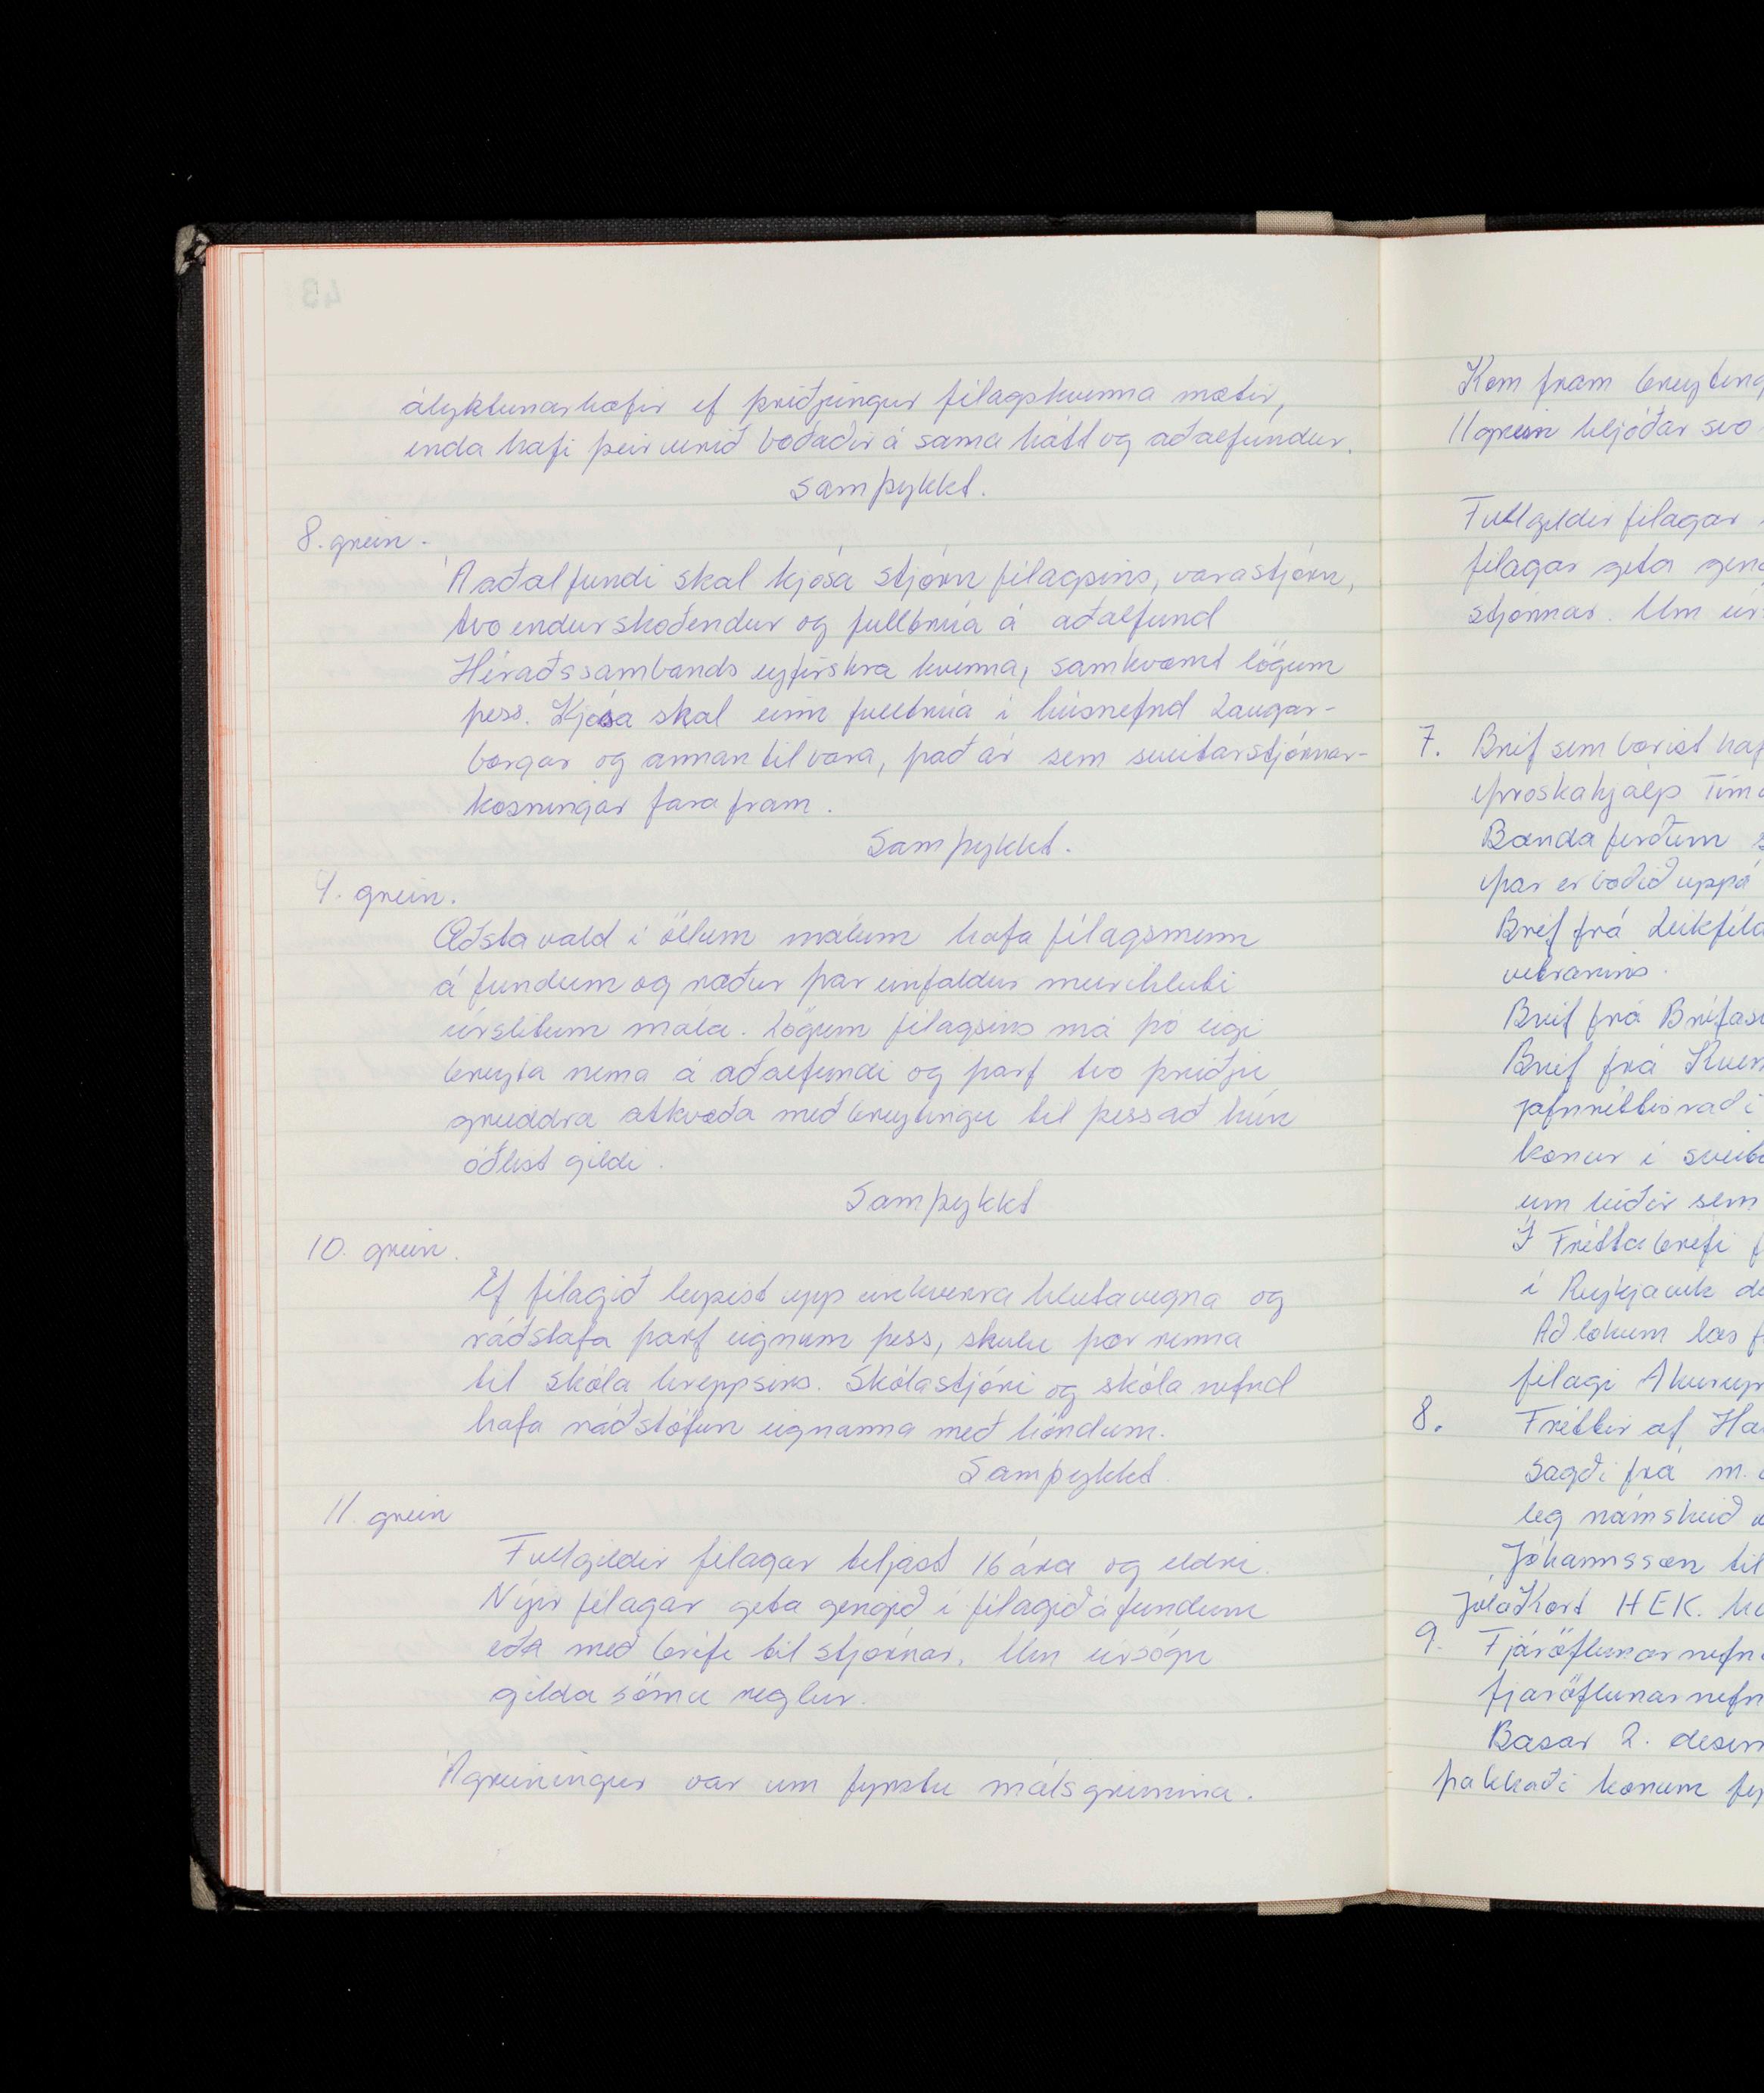 ályktunarhæfir ef þriðjungur félagskvenna mætir,
enda hafi þeir verið boðaðir á sama hátt og aðalfundur.
Samþykkt.
8. grein.
Á aðalfundi skal kjósa stjórn félagsins, varastjórn,
tvo endurskoðendur og fulltrúa á aðalfund
Héraðssambands eyfirskra kvenna, samkvæmt lögum
þess. Kjósa skal einn fulltrúa í húsnefnd Laugar-
borgar og annan til vara, það ár sem sveitarstjórnar-
kosningar fara fram.
Samþykkt.
9. grein.
Æðsta vald í öllum málum hafa félagsmenn
á fundum og ræður þar einfaldur meirihluti
úrslitum mála. Lögum félagsins má þó eigi
breyta nema á aðalfundi og þarf tvo þriðju
greiddra atkvæða með breytingu til þess að hún
öðlist gildi.
Samþykkt
10. grein.
Ef félagið leysist upp einhverra hluta vegna og
ráðstafa þarf eignum þess, skulu þær renna
til skóla hreppsins. Skólastjóri og skóla nefnd
hafa ráðstöfun eignanna með höndum.
Samþykkt.
11. grein
Fullgildir félagar teljast 16 ára og eldri.
Nýir félagar geta gengið í félagið á fundum
eða með bréfi til stjórnar. Um úrsögn
gilda sömu reglur.
Ágreiningur var um fyrstu málsgreinina.
Kom fram breyting
11 grein hljóðar svo
Fullgildir félagar
félagar geta geng
stjórnar. Um úr
7. Bréf sem borist haf
þroskahjálp Tíma
Bænda ferðum s
þar er boðið uppá
Bréf frá Leikféla
vetrarins.
Bréf frá Bréfas
Bréf frá Kven
jafnréttisráð í
konur í sveita
um leiðir sem
Í Frétta bréfi f
í Reykjavík de
Að lokum las f
félagi Akureyr
8. Fréttir af Ha
Sagði frá m. a
leg námskeið
Jóhannsson til
JólaKort HEK. h
9. Fjáröflunar nefn
fjáröflunar nefn
Basar 2. desem
þakkaði konum fy